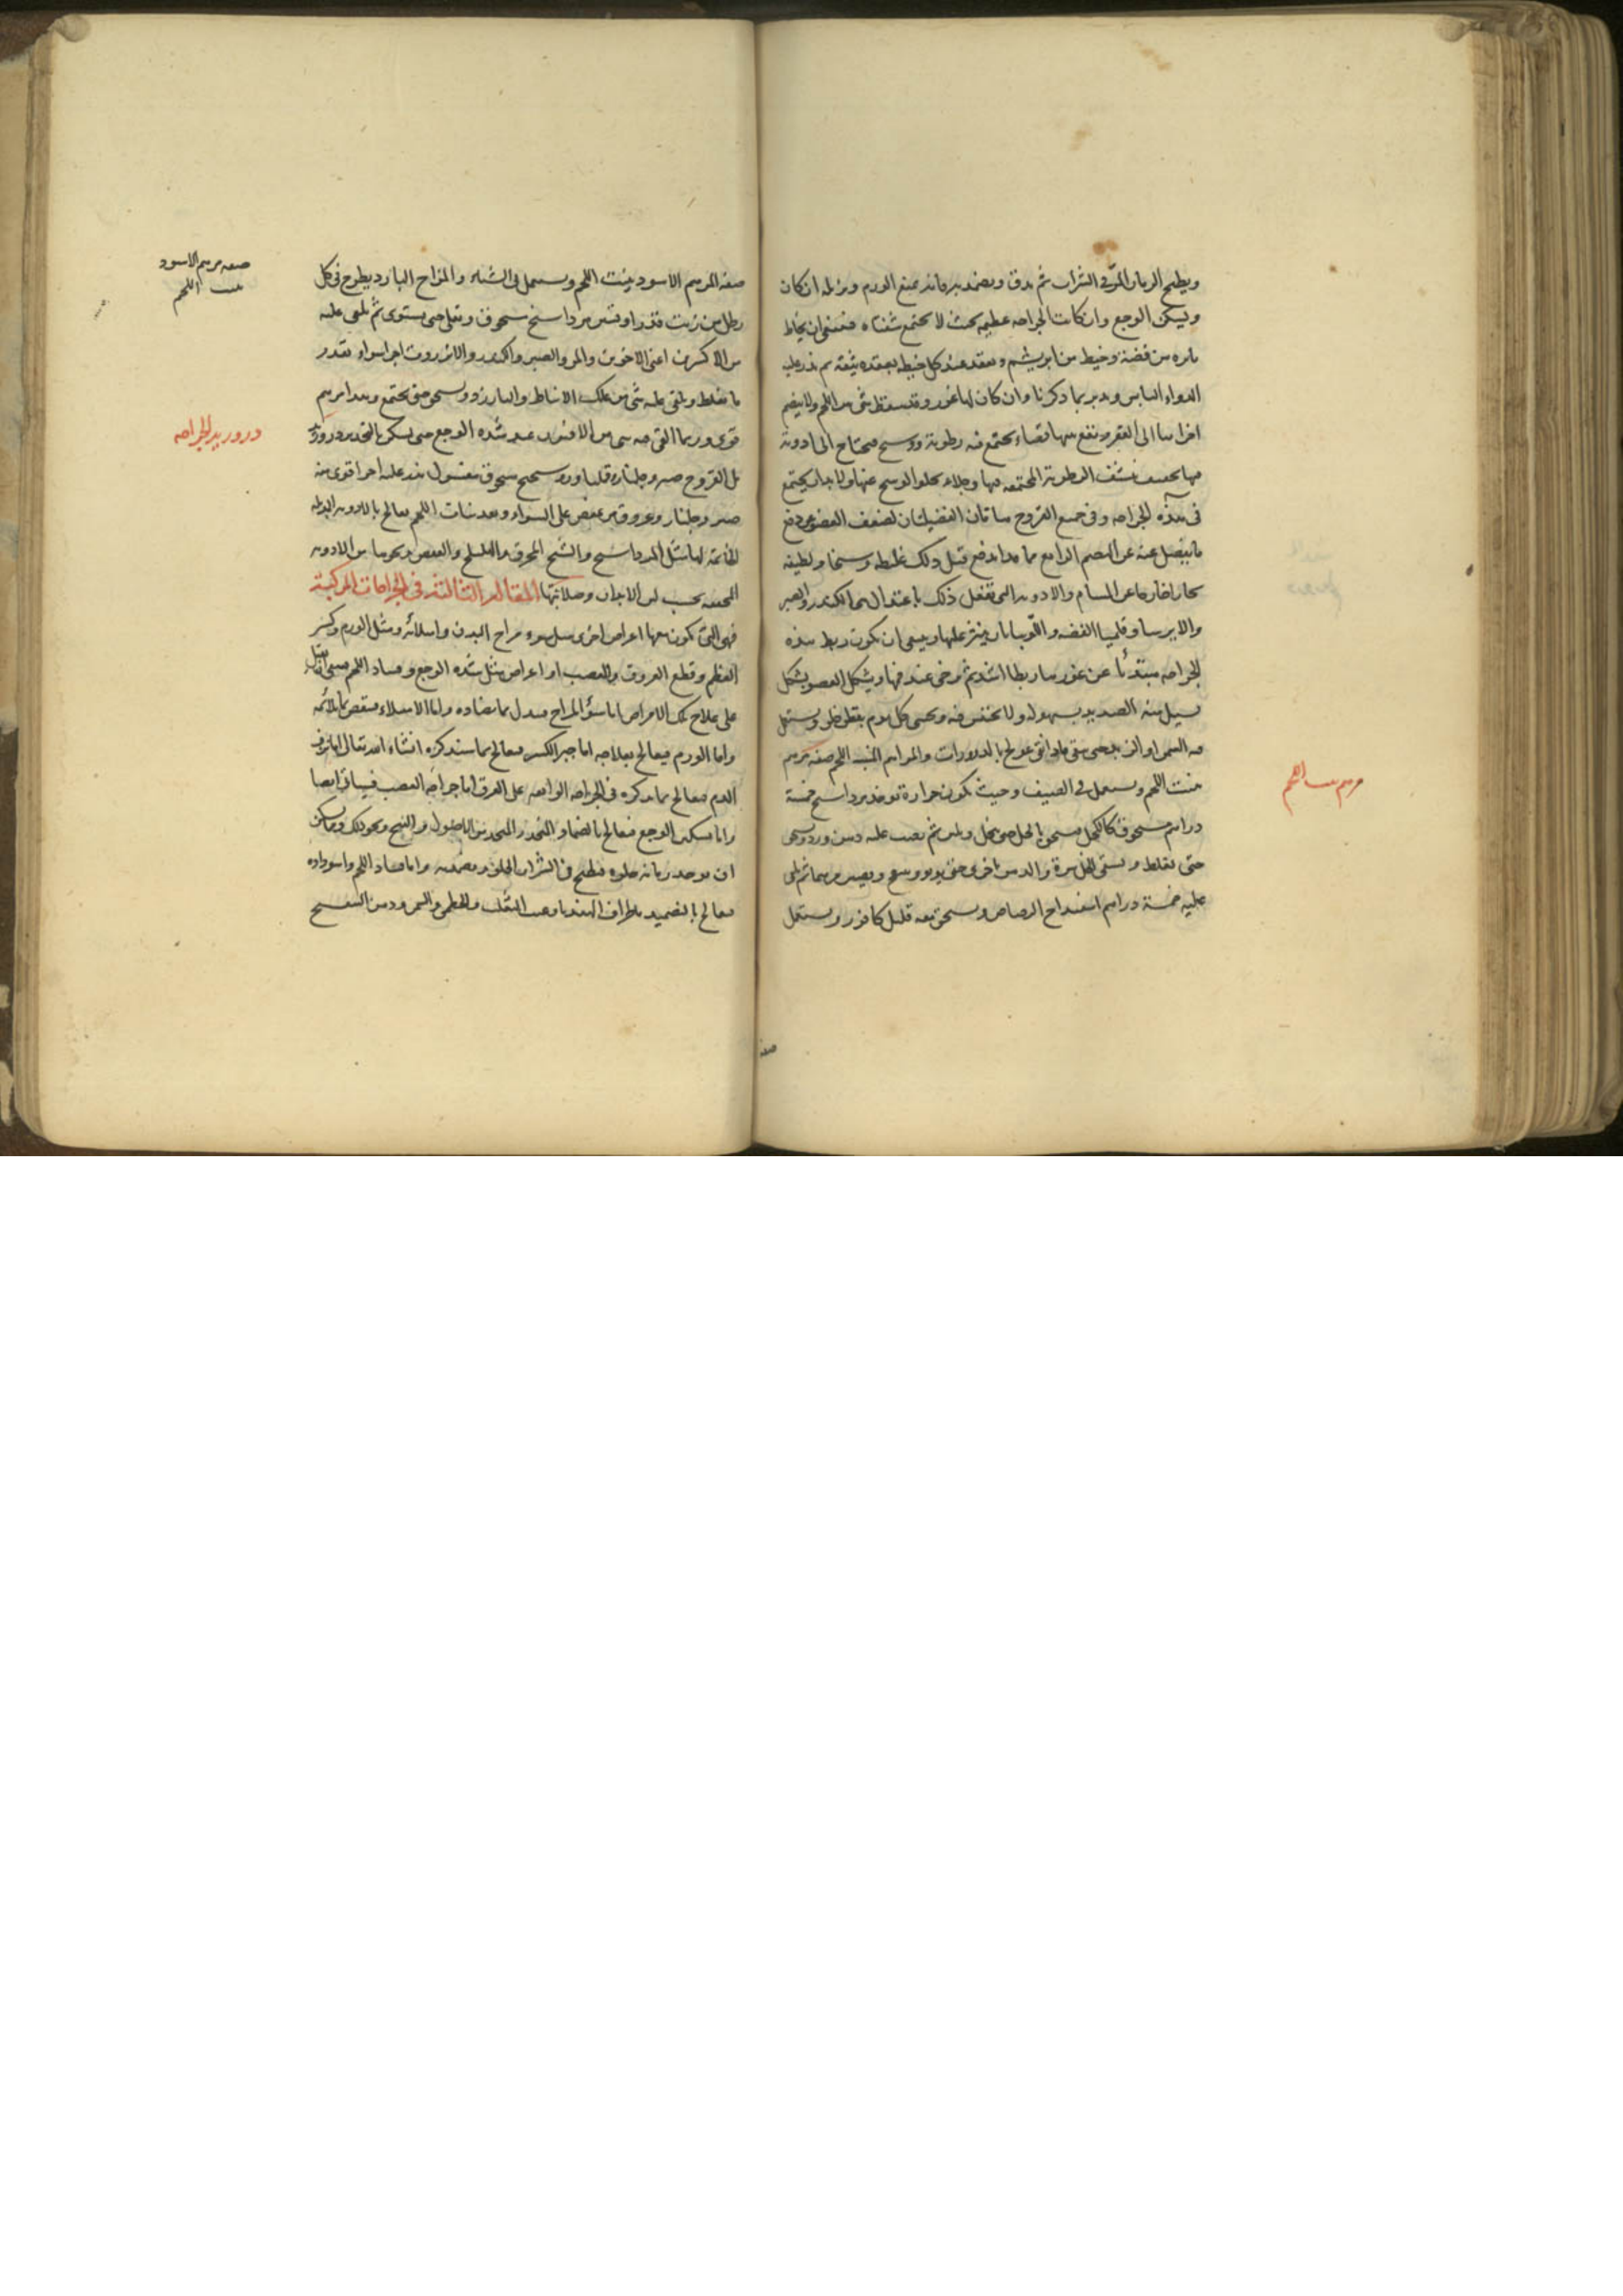 ويطبخ الرمان المزّ في الشراب ثم يدق ويضمد به فانه يمنع الورم ويزيله ان كان
ويسكن الوجع وان كانت الجراحه عظيمه بحيث لا تجتمع شفتاه فينبغي ان يخاط
بابره من فضة وخيط من ابريشم ويعقد عند كل خيطه بعقده ثم يذر عليه
الدواء اليابس ويدبر بما ذكرنا وان كان لها غور وقد سقط شي من اللحم ولا ينضم
اجزاها الى القعر ويقع بينها فضاء يجتمع فيه رطوبة ووسخ فيحتاج الى ادوية
فيها تجفيف ينشف الرطوبة المجتمعه فيها وجلاء يجلو الوسخ عنها ولا بد ان يجتمع
في هذه الجراحه وفي جميع القروح هاتان الفضلتان لضعف العضو عن دفع
ما يفضل عنه عن الهضم الرابع مما يدفع قبل ذلك غليظه وسخا ولطيفه
بخارا خارجا عن المسام والادويه التي تفعل ذلك باعتدال هي الكندر والصبر
والايرسا وقليميا الفضه والتوتيا بان ينثر عليها وينبغي ان يكون ربط هذه
الجراحه مبتدئا من غورها ربطا اشد ثم يرخى عند فمها ويشكل العضو بشكل
يسيل منه الصديد بسهوله ولا يحتقن فيه ويحشى كل يوم بقطن خلق ويستعمل
فيه السمن او الزبد حتى ينقى فاذا نقى عولج بالذرورات والمراهم المنبته اللحم صفة مرهم
منبت اللحم ويستعمل في الصيف وحيث يكون حرارة يوخذ مرداسنج خمسة
دراهم مسحوق كالكحل فيسحق بالخل حتى ينحل ويلين ثم يصب عليه دهن ورد ويسحق
حتى يغلظ ويسقى الخل مرة والدهن اخرى حتى يربو وينتفخ ويصير مرهما ثم يلقى
عليه خمسة دراهم اسفيداج الرصاص ويسحق معه قليل كافور ويستعمل
صفة
مرهم منبت اللحم
صفة المرهم الاسود ينبت اللحم ويستعمل في الشتاء والمزاج البارد يطرح في كل
رطل من زيت قدر اوقيتين مرداسنج مسحوق ويغلى حتى يستوي ثم يلقى عليه
من الاكسرين اعني الاخوين والمر والصبر والكندر والانزروت اجزاء سواء بقدر
ما يغلظ ويلقى عليه شي من علك الانباط والبارزد ويسحق حتى يجتمع وهذا مرهم
قوي وربما القي فيه شي من الافيون عند شدة الوجع حتى يسكن بالتخدير ذرور
للقروح صبر وجلنار وقليميا وروسختج مسحوق مغسول يذر عليه اخر اقوى منه
صبر وجلنار وعروق وعفص على السواء وبعد نبات اللحم يعالج بالادويه المدمله
الخاتمة لها مثل المرداسنج والشيح المحرق والهليلج والعفص ونحوها من الادويه
المجففه بحسب لين الابدان وصلابتها المقالة الثالثة في الجراحات المركبة
فهي التي يكون معها اعراض اخرى مثل سوء مزاج البدن وامتلائه ومثل الورم وكسر
العظم وقطع العروق والعصب او اعراض مثل شدة الوجع وفساد اللحم فينبغي ان يقبل
على علاج تلك الامراض اما سؤ المزاج فيبدل بما يضاده واما الامتلاء فينقص بما يلائمه
واما الورم فيعالج بعلاجه اما جبر الكسر فيعالج بما سنذكره انشاء الله تعالى اما نزف
الدم فيعالج بما يذكره في الجراحه الواقعه على العرق اما جراحة العصب فسياتي ايضا
واما تسكين الوجع فيعالج بالضماد المخدر المتخذ من الافيون والبنج ونحو ذلك ومما يسكن
ان يوخذ رمانه حلوه فتطبخ في الشراب الحلو ويضمد به واما فساد اللحم واسوداده
فيعالج بالتضميد باطراف الهندبا وعنب الثعلب والخطمي والسمن ودهن البنفسج
صفة مرهم الاسود
منبت اللحم
ذرور للجراحه